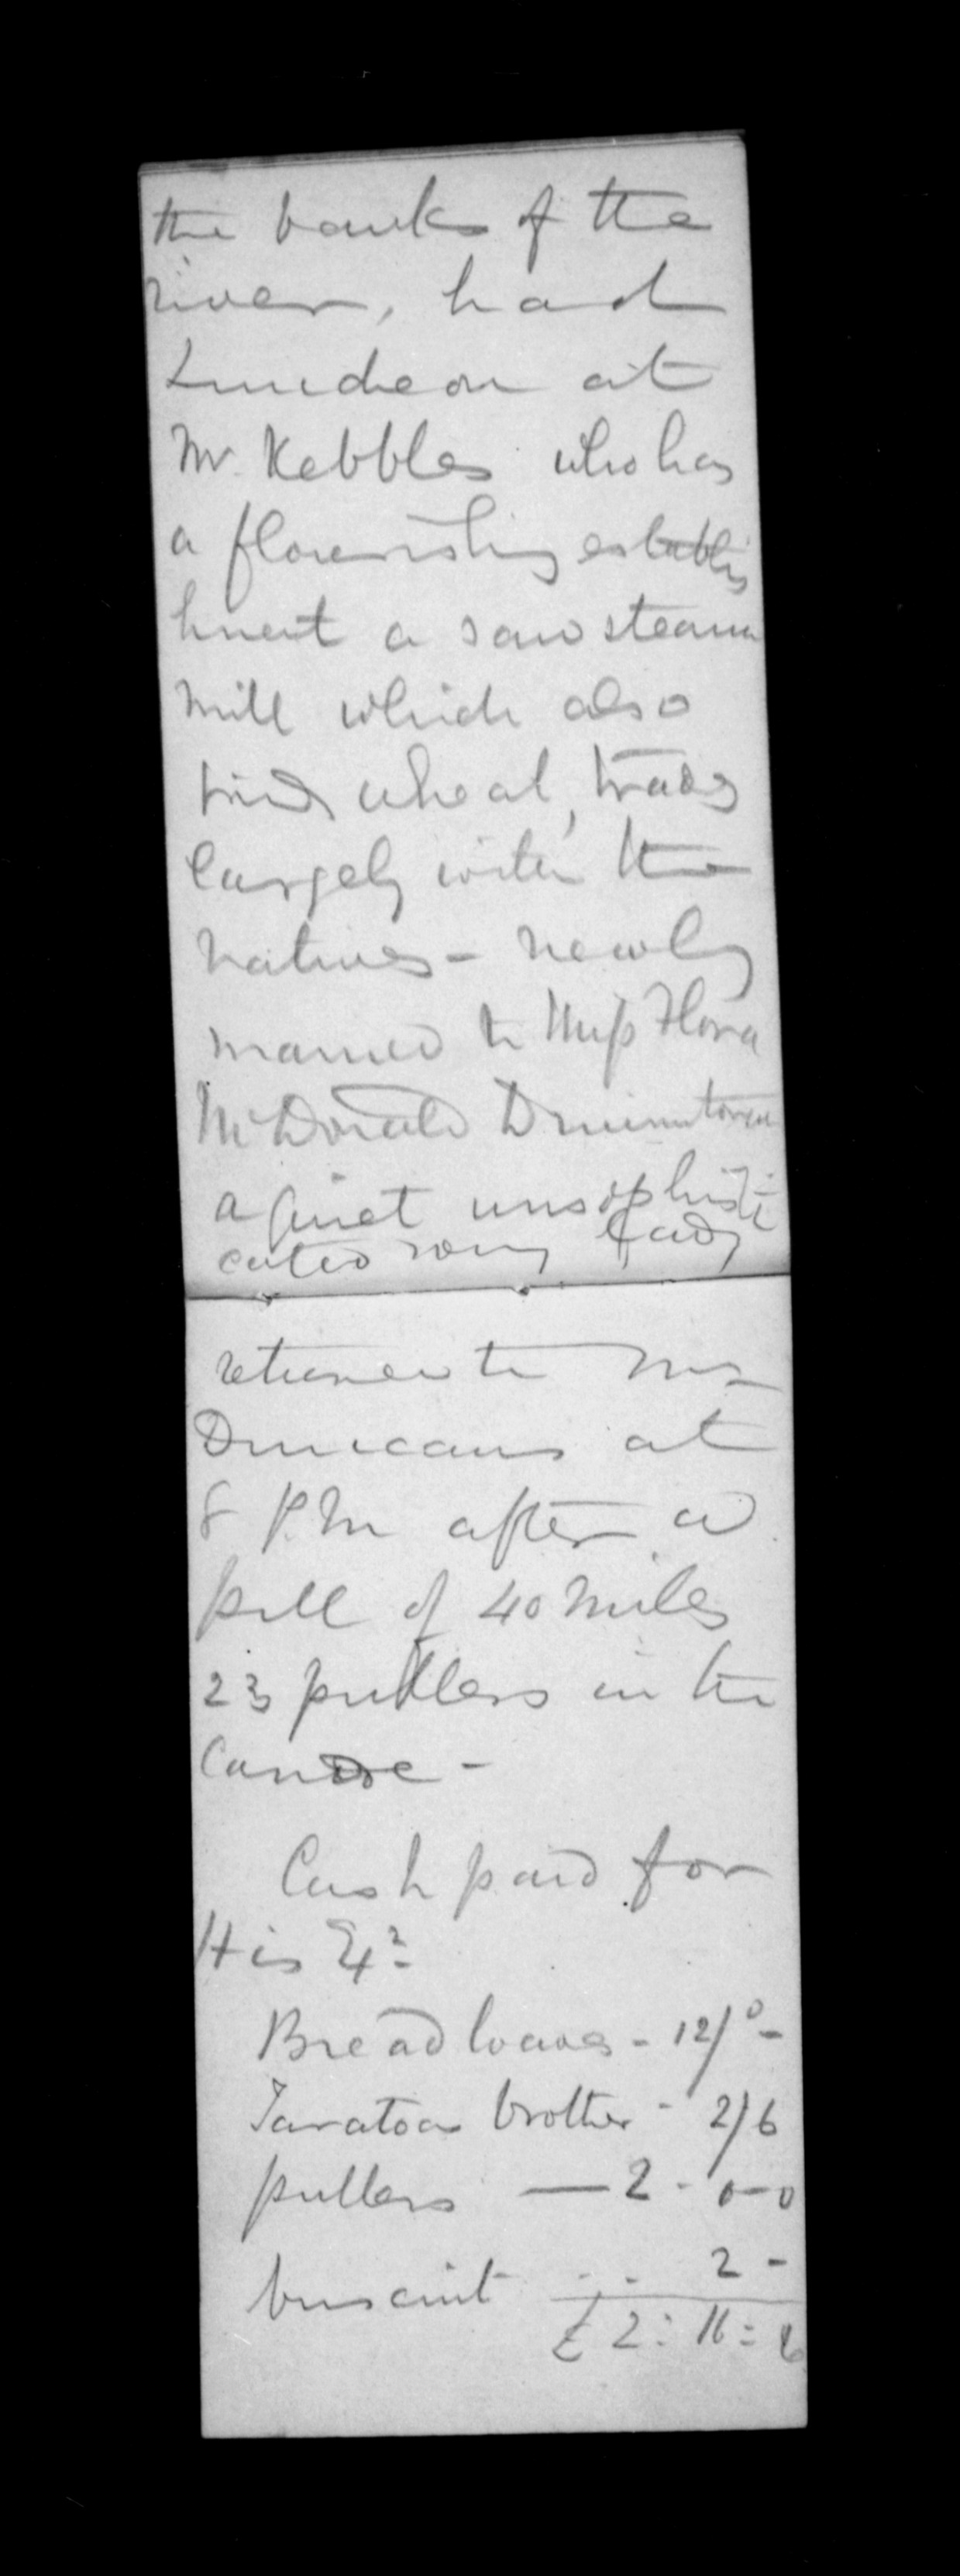 the banks of the
river, had
Luncheon at
Mr. Kebbles who has
a flourishing establis
hment a saw steam
mill which also
wheat, trades
largely with the
natives - newly
married to Miss Flora
McDonald
a quiet unsophisti
cated young Lady
returned to Mr
Duncans at
8 P.M after a
pull of 40 miles
23 pullers in the
Canoe -
Cash paid for
His Ey
Bread loaves - 12/0 -
Taratoas brother - 2/6
pullers — 2 - 0 - 0
buscuit - - 2 -
£ 2 : 11 : 6